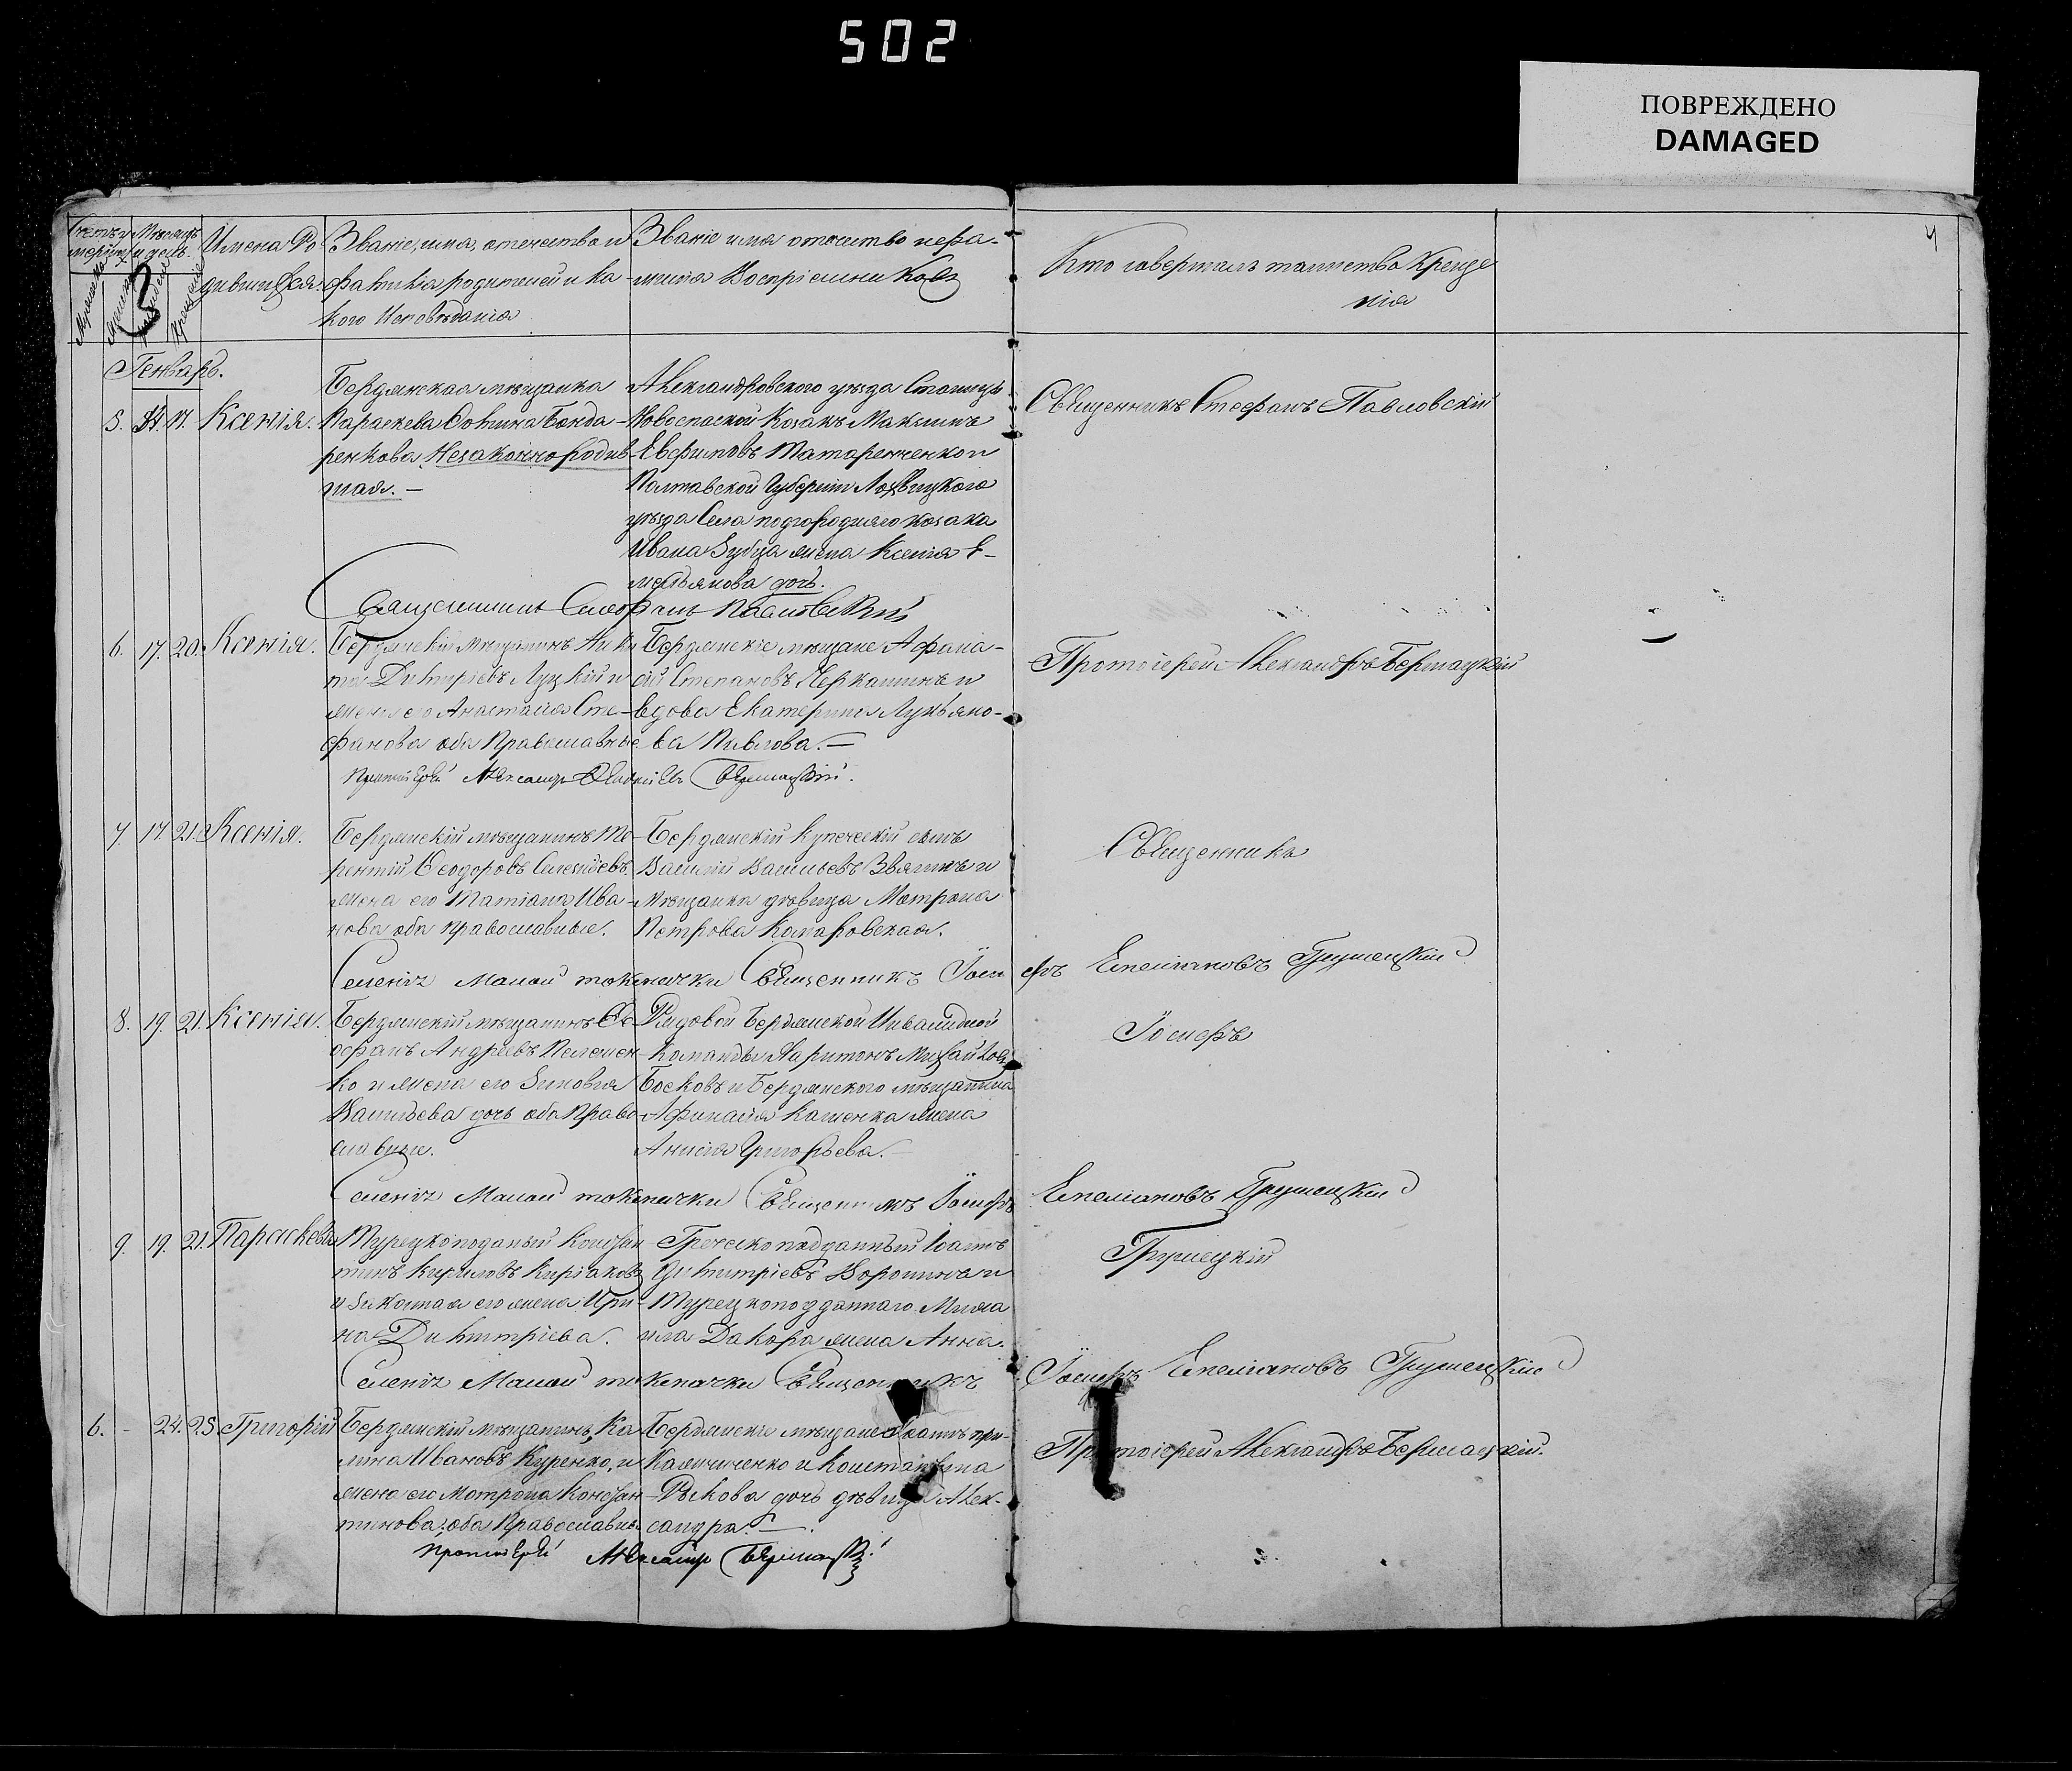 502
ПОВРЕЖДЕНО
DAMAGED
4
Имена Ро-
дившихся.
Званіе, имя, отечество и
фамилія родителей и ка-
кого Исповѣданія
Званіе имя отчество и фа-
милія Воспріемниковъ
Кто совершалъ таинство Креще
нія
Генварь.
5. 14. 17. Ксенія.
Бердянская мѣщанка
Параскева Фотина Бонда-
ренкова Незаконнорожив-
шая. —
Александровского уѣзда Станицы
Новоспаской Козакъ Максимъ
Евфимовъ Татаренченко и
Полтавской Губерніи Лохвицкого
уѣзда Села подгородняго козака
Ивана Зубца жена Ксенія Е-
мельянова дочь.
Священникъ Стефанъ Павловскій
Священникъ Стефанъ Павловскій
6. 17. 20. Ксенія.
Бердянскій Мѣщанинъ Ники
та Димитріевъ Луцкій и
жена его Анастасія Сте-
фанова оба Православные
Бердянскіе мѣщане Афана-
сій Степановъ Черкашинъ и
вдова Екатерина Лукьяно-
ва Пивнова. —
Протоіерей Александръ Бершацкій
Протоіерей Александръ Бершацкій.
7. 17. 21. Ксенія.
Бердянскій мѣщанинъ Те-
рентій Ѳеодоровъ
жена его Татіана Ива-
нова оба православные.
Бердянскій купеческій сынъ
Василій Васильевъ Звягинъ и
мѣщанка дѣвица Матрона
Петрова Комаровская.
Священника
Священникъ Іосифъ Емеліановъ Грушецкій
8. 19. 21. Ксенія.
Бердянскій мѣщанинъ Ѳе-
офанъ Андреевъ Пелешен-
ко и жена его Зиновія
Васильева дочь оба Право-
славные.
Рядовой Бердянской Инвалидной
Команды Харитонъ Михайловъ
Босковъ и Бердянского мѣщанина
Афанасія Кашенка жена
Анисія Григорьева. —
Іосифъ
Священникъ Іосифъ Емеліановъ Грушецкій
9. 19. 21. Параскева
Турецкоподаный Констан
тинъ Кириловъ Киріаковъ
и законная его жена Ири-
на Димитріева.
Греческоподданный Іоаннъ
Димитріевъ Воронина и
Турецкоподданнаго Миха
ила Дакора жена Анна.
Грушецкій
Священникъ Іосифъ Емеліановъ Грушецкій
6. - 24. 25. Григорій
Бердянскій мѣщанинъ, Ка
лина Ивановъ Куренко, и
жена его Матрона Констан-
тинова, оба Православны
Бердянскіе мѣщане
Калниченко и Константина
Рыкова дочь дѣвица Алек-
сандра. —
Протоіерей Александръ Бершацкій.
Протоіерей Александръ Бершацкій